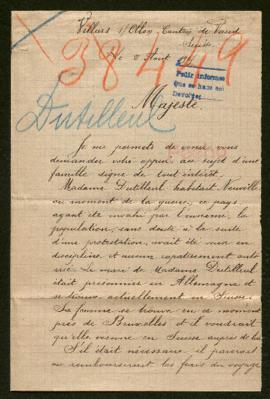 Villars s/Ollon, Canton de Vaud
Suisse
le 8 Août
38449
Pedir informes
que se hace en
Devolver
Majesté
Dutilleul
Je me permets de venir vous
demander votre appui au sujet d'une
famille digne de tout intérêt.
Madame Dutilleul habitant Neuville
au moment de la guerre, ce pays
ayant été envahi par l'ennemi, la
population, sans doute à la suite
d'une protestation, avait été mise en
discipline et aucun rapatriement auto
risé. Le mari de Madame Dutilleul
était prisonnier en Allemagne et
se trouve actuellement en Suisse.
Sa femme se trouve en ce moment
près de Bruxelles et il voudrait
qu'elle vienne en Suisse auprès de lui.
S'il était nécessaire il
remboursement les frais du voyage